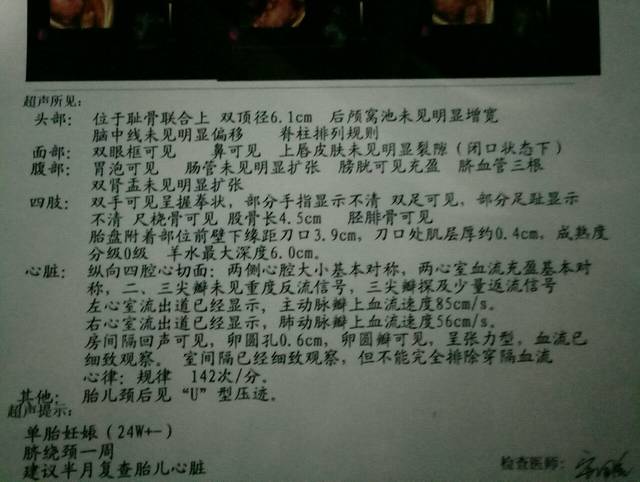 超声所见:
头部: 位于耻骨联合上 双顶径6.1cm 后颅窝池未见明显增宽
脑中线未见明显偏移 脊柱排列规则
面部: 双眼眶可见 鼻可见 上唇皮肤未见明显裂隙(闭口状态下)
腹部: 胃泡可见 肠管未见明显扩张 膀胱可见充盈 脐血管三根
双肾盂未见明显扩张
四肢: 双手可见呈握拳状,部分手指显示不清 双足可见,部分足趾显示
不清 尺桡骨可见 股骨长4.5cm 胫腓骨可见
胎盘附着部位前壁下缘距刀口3.9cm,刀口处肌层厚约0.4cm,成熟度
分级0级 羊水最大深度6.0cm。
心脏: 纵向四腔心切面:两侧心腔大小基本对称,两心室血流充盈基本对
称,二、三尖瓣未见重度反流信号,三尖瓣探及少量返流信号
左心室流出道已经显示,主动脉瓣上血流速度85cm/s。
右心室流出道已经显示,肺动脉瓣上血流速度56cm/s。
房间隔回声可见,卵圆孔0.6cm,卵圆瓣可见,呈张力型,血流已
细致观察。 室间隔已经细致观察,但不能完全排除穿隔血流
心律:规律 142次/分。
其他: 胎儿颈后见“U”型压迹。
超声提示:
单胎妊娠(24W+-)
脐绕颈一周
建议半月复查胎儿心脏
检查医师: